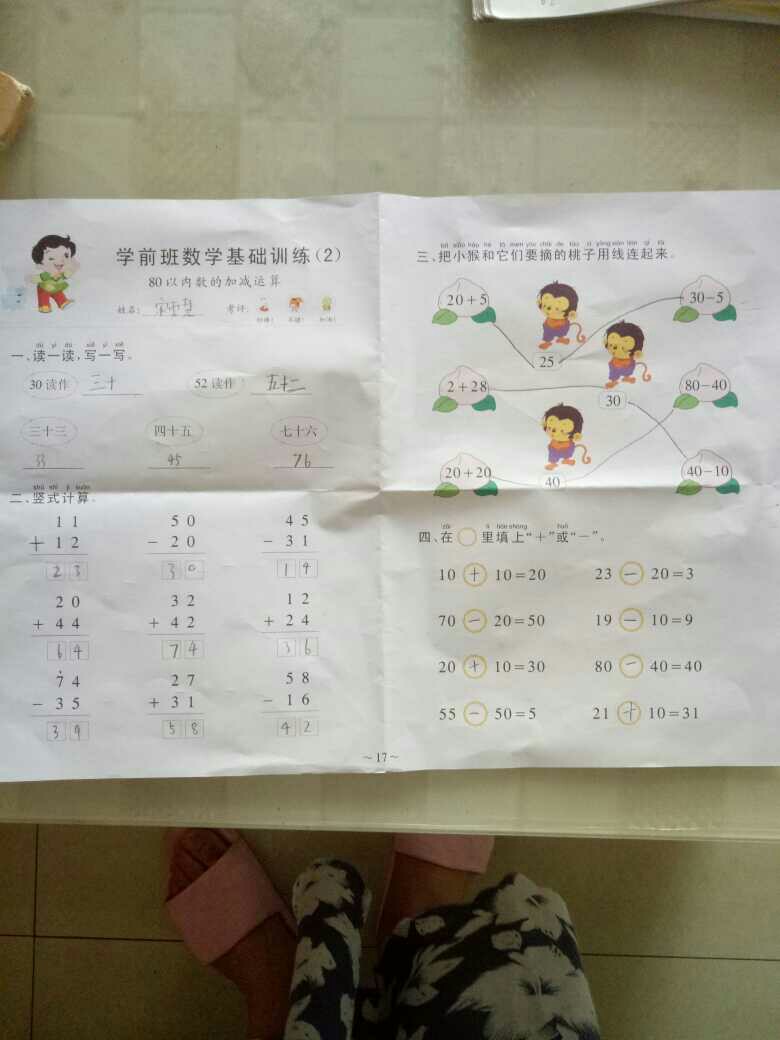 学前班数学基础训练(2)
80以内数的加减运算
姓名: 考评:
dú yì dú xiě yì xiě
一、读一读,写一写。
30读作 三十 52读作 五十二
三十三 四十五 七十六
33 45 76
shù shì jì suàn
二、竖式计算。
11 50 45
+ 12 - 20 - 31
23 30 14
20 32 12
+ 44 + 42 + 24
64 74 36
74 27 58
- 35 + 31 - 16
39 58 42
~17~
bǎ xiǎo hóu hé tā men yào zhāi de táo zi yòng xiàn lián qǐ lái
三、把小猴和它们要摘的桃子用线连起来。
20+5 30-5
25
2+28 80-40
30
20+20 40-10
40
zài lǐ tián shàng huò
四、在○里填上“+”或“-”。
10 + 10=20 23 - 20=3
70 - 20=50 19 - 10=9
20 + 10=30 80 - 40=40
55 - 50=5 21 + 10=31